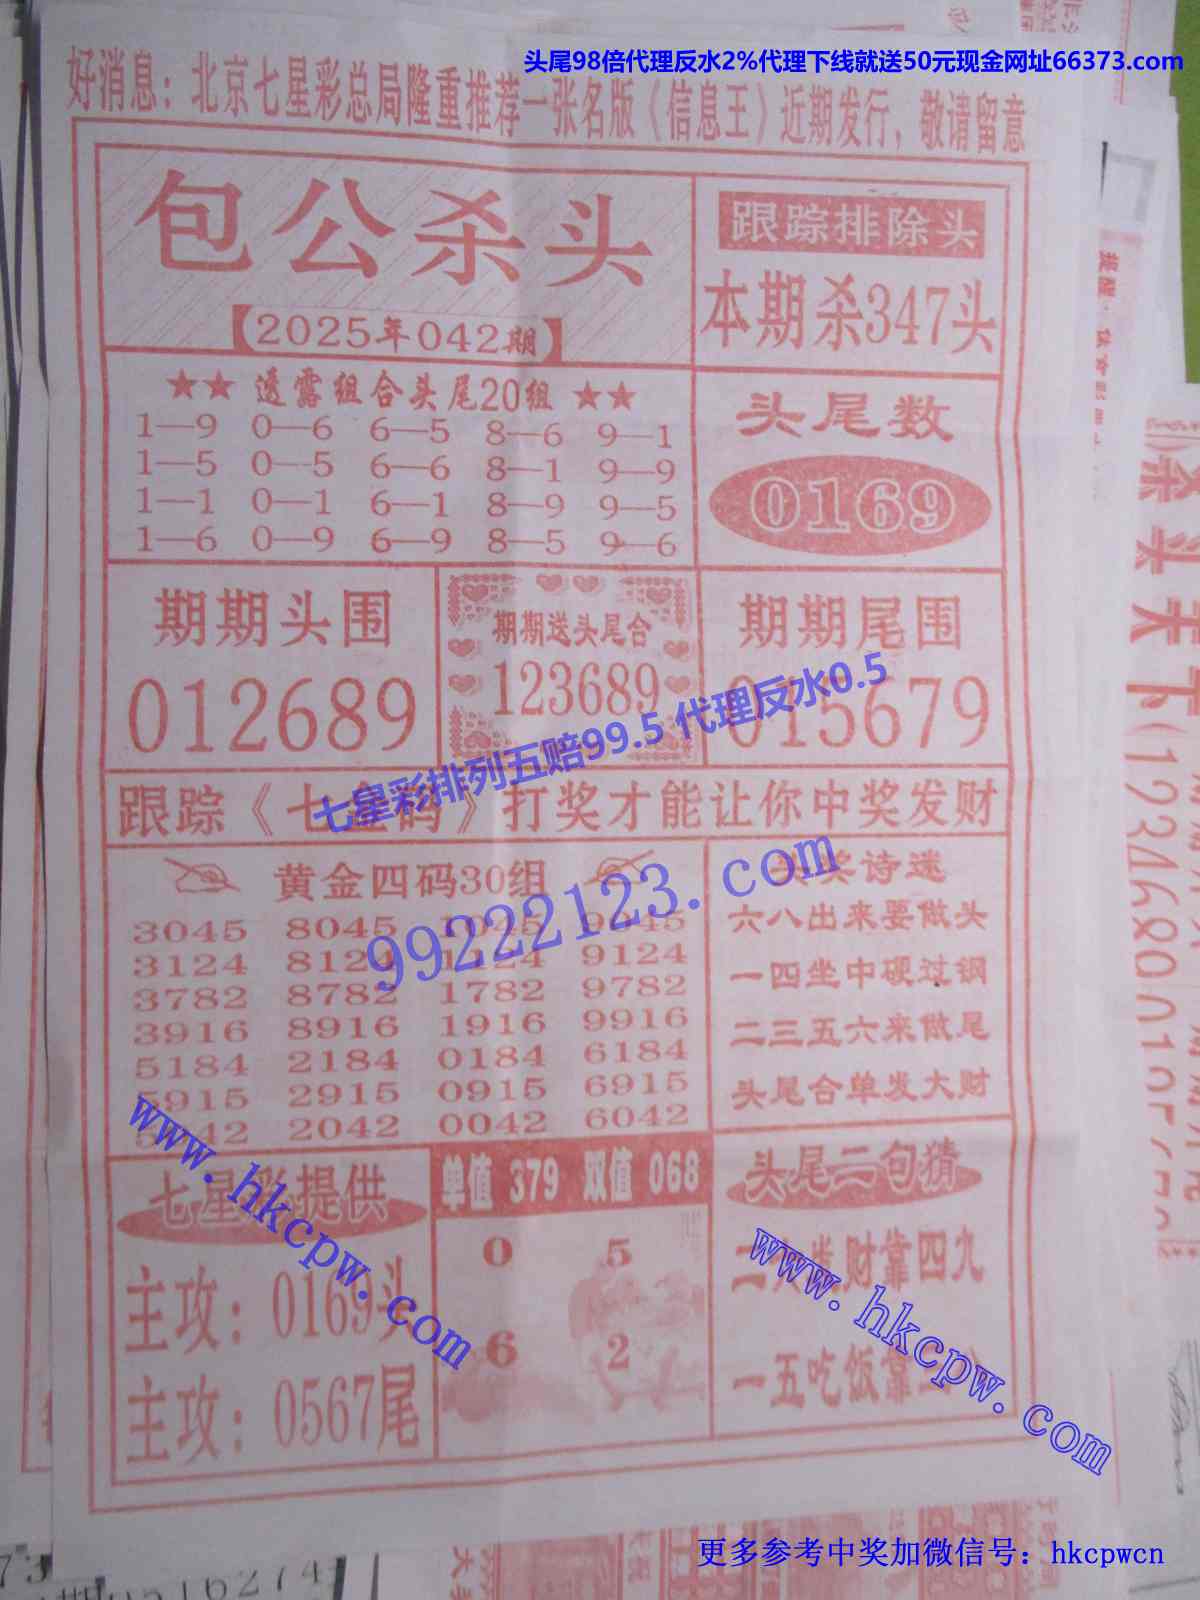 头尾98倍代理反水2%代理下线就送50元现金网址66373.com
好消息：北京七星彩总局隆重推荐一张名版《信息王》近期发行，敬请留意
包公杀头
【2025年042期】
跟踪排除头
本期杀347头
★★ 透露组合头尾20组 ★★
1—9 0—6 6—5 8—6 9—1
1—5 0—5 6—6 8—1 9—9
1—1 0—1 6—1 8—9 9—5
1—6 0—9 6—9 8—5 9—6
头尾数
0169
期期头围
012689
期期送头尾合
123689
期期尾围
015679
七星彩排列五赔99.5 代理反水0.5
跟踪《七星码》打奖才能让你中奖发财
99222123.com
黄金四码30组
3045 8045 1045 9045
3124 8124 1124 9124
3782 8782 1782 9782
3916 8916 1916 9916
5184 2184 0184 6184
5915 2915 0915 6915
5042 2042 0042 6042
奖诗迷
六八出来要做头
一四坐中硬过钢
二三五六来做尾
头尾合单发大财
www.hkcpw.com
七星彩提供
主攻：0169头
主攻：0567尾
单值 379 双值 068
0 5
6 2
头尾二句猜
财靠四九
一五吃饭靠
www.hkcpw.com
提醒：
杀头天下
更多参考中奖加微信号：hkcpwcn